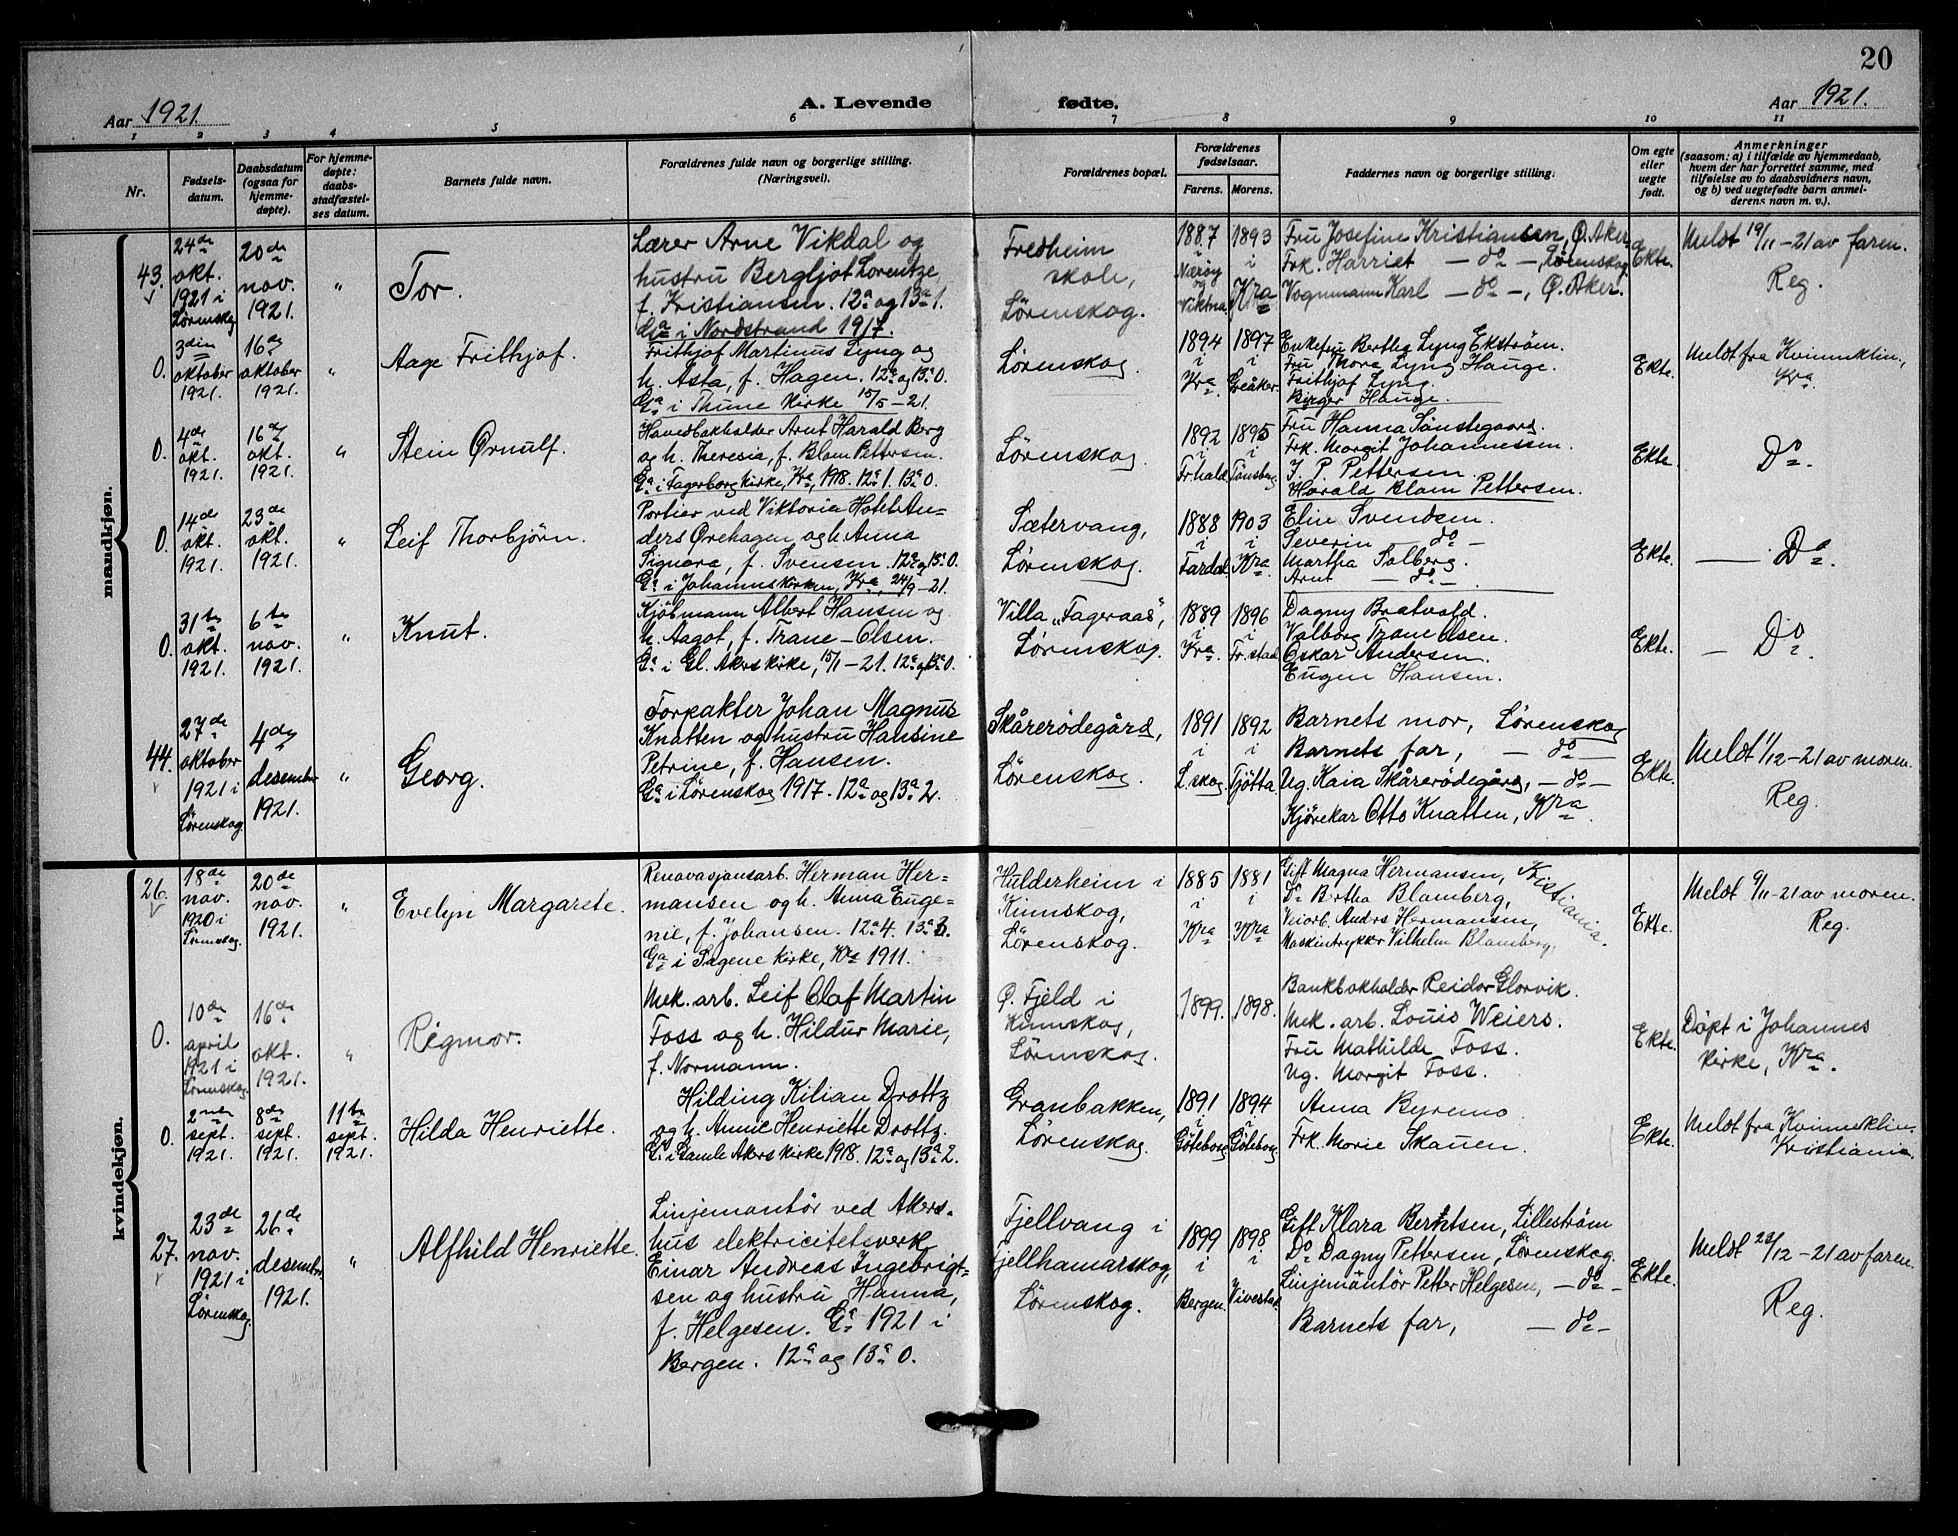 20
Aar 1921.
A. Levende fødte.
Aar 1921.
1 2 3 4 5 6 7 8 9 10 11
Nr.
Fødsels-
datum.
Daabsdatum
(ogsaa for
hjemme-
døpte).
For hjemme-
døpte:
daabs-
stadfæstel-
ses datum.
Barnets fulde navn.
Forældrenes fulde navn og borgerlige stilling.
(Næringsvei).
Forældrenes bopæl.
Forældrenes
fødselsaar.
Farens. Morens.
Faddernes navn og borgerlige stilling:
Om egte
eller
uegte
født.
Anmerkninger
(saasom: a) i tilfælde av hjemmedaab,
hvem der har forrettet samme, med
tilføielse av to daabsvidners navn,
og b) ved uegtefødte barn anmel-
derens navn m. v.).
mandkjøn.
43.
24de
okt.
1921 i
Lørenskog
20de
nov.
1921.
"
Tor.
Lærer Arne Vikdal og
hustru Bergljot Lorentze
f. Kristiansen. 12a og 13a 1.
Ga i Nordstrand 1917.
Fredheim
skole,
Lörenskog.
1887
Nærøy
og
Vikna
1893
i
Kra
Fru Josefine Kristiansen, Ø. Aker
Frk. Harriet — do —, Lørenskog
Vognmann Karl — do —, Ø. Aker.
Ekte.
Meldt 19/11-21 av faren.
Reg.
0.
3din
oktober
1921.
16de
oktober
1921.
"
Aage Frithjof.
Frithjof Martinus Lyng og
h. Asta, f. Hagen. 12a og 13a 0.
Ga i Thune kirke 15/5-21.
Lörenskog.
1894
i
Kra
1897
i
Greåker.
Enkefru Bertha Lyng Ekström.
Fru Thora Lyng Hauge.
Frithjof Lyng.
Birger Hauge.
Ekte.
Meldt fra Kvinneklin.,
Kra.
0.
4de
okt.
1921.
16de
okt.
1921.
"
Stein Ørnulf.
Hovedbokholder Arnt Harald Berg
og h. Theresia, f. Blom Pettersen.
Ga i Fagerborg kirke, Kra, 1918. 12a 1. 13a 0.
Lörenskog.
1892
i
Fr.hald.
1895
i
Tønsberg.
Fru Hanna Sønstegaard.
Frk. Margit Johannessen.
J. P. Pettersen.
Harald Blom Pettersen.
Ekte.
Do.
0.
14de
okt.
1921.
23de
okt.
1921.
"
Leif Thorbjörn.
Portier ved Viktoria Hotel An-
ders Ørehagen og h. Anna
Signora, f. Svensen. 12a og 13a 0.
Ga i Johanneskirken, Kra, 24/9-21.
Sætervang,
Lörenskog.
1888
i
Fardal
1903
i
Kra.
Elin Svendsen.
Severin — do —
Martha Solberg.
Arnt — do —
Ekte.
— Do.
0.
31te
okt.
1921.
6te
nov.
1921.
"
Knut.
Kjøbmann Albert Hansen og
h. Aagot, f. Trane-Olsen.
Ga i Gl. Akers kirke, 15/1-21. 12a og 13a 0.
Villa „Fageraas",
Lörenskog.
1889
i
Kra.
1896
i
Fr.stad.
Dagny Bratvold.
Valborg Trane Olsen.
Oskar Andersen.
Eugen Hansen.
Ekte.
— Do.
44.
27de
oktober
1921 i
Lörenskog.
4de
desember
1921.
"
Georg.
Forpakter Johan Magnus
Knatten og hustru Hansine
Petrine, f. Hansen.
Ga i Lörenskog 1917. 12a og 13a 2.
Skårerödegård,
Lörenskog.
1891
i
L.skog
1892
i
Tjötta.
Barnets mor, Lörenskog
Barnets far, — do —
Ug. Kaia Skårerödegård, — do —
Kjörekar Otto Knatten, Kra.
Ekte.
Meldt 1/12-21 av moren.
Reg.
kvindekjøn.
26.
18de
nov.
1920 i
Lörenskog.
20de
nov.
1921.
"
Evelyn Margarete.
Renovasjonsarb. Herman Her=
mansen og h. Anna Euge=
nie, f. Johansen. 12a 4. 13a 3.
Ga i Sagene kirke, Kra 1911.
Hulderheim i
Kinnskog,
Lörenskog.
1885
i
Kra
1881
i
Kra
Gift Magna Hermansen, Kristiania.
Do Bertha Blomberg,
Veiarb. Andrs Hermansen,
Maskintrykker Vilhelm Blomberg,
Ekte.
Meldt 9/11-21 av moren.
Reg.
0.
10de
april
1921 i
Lörenskog.
16de
okt.
1921.
"
Rigmor.
Mek. arb. Leif Olaf Martin
Foss og h. Hildur Marie,
f. Normann.
Ø. Fjeld i
Kinnskog,
Lörenskog.
1899. 1898.
Bankbokholder Reidar Glorvik.
Mek. arb. Louis Weiers.
Fru Mathilde Foss.
Ug. Margit Foss.
Ekte.
Döpt i Johannes
kirke, Kra.
0.
2nen
sept.
1921.
8de
sept.
1921.
11te
sept.
1921.
Hilda Henriette.
Hilding Kilian Drottz
og h. Annie Henriette Drottz.
Ga i Gamle Akers kirke 1918. 12a og 13a 2.
Granbakken,
Lörenskog.
1891
i
Göteborg
1894
i
Göteborg.
Anna Byremo.
Frk. Marie Skauen.
Ekte.
Meldt fra Kvinneklin.
Kristiania.
27.
23de
nov.
1921 i
Lörenskog.
26de
desember
1921.
"
Alfhild Henriette.
Linjemontör ved Akers=
hus elektricitetsverk
Einar Andreas Ingebrigt=
sen og hustru Hanna,
f. Helgesen. Ga 1921 i
Bergen. 12a og 13a 0.
Fjellvang i
Fjellhamarskog,
Lörenskog.
1899
i
Bergen.
1898.
i
Vivestad.
Gift Klara Berntsen, Lillestrøm
Do Dagny Pettersen, Lörenskog.
Linjemontör Petter Helgesen, — do —
Barnets far, — do —
Ekte.
Meldt 22/12-21 av faren.
Reg.